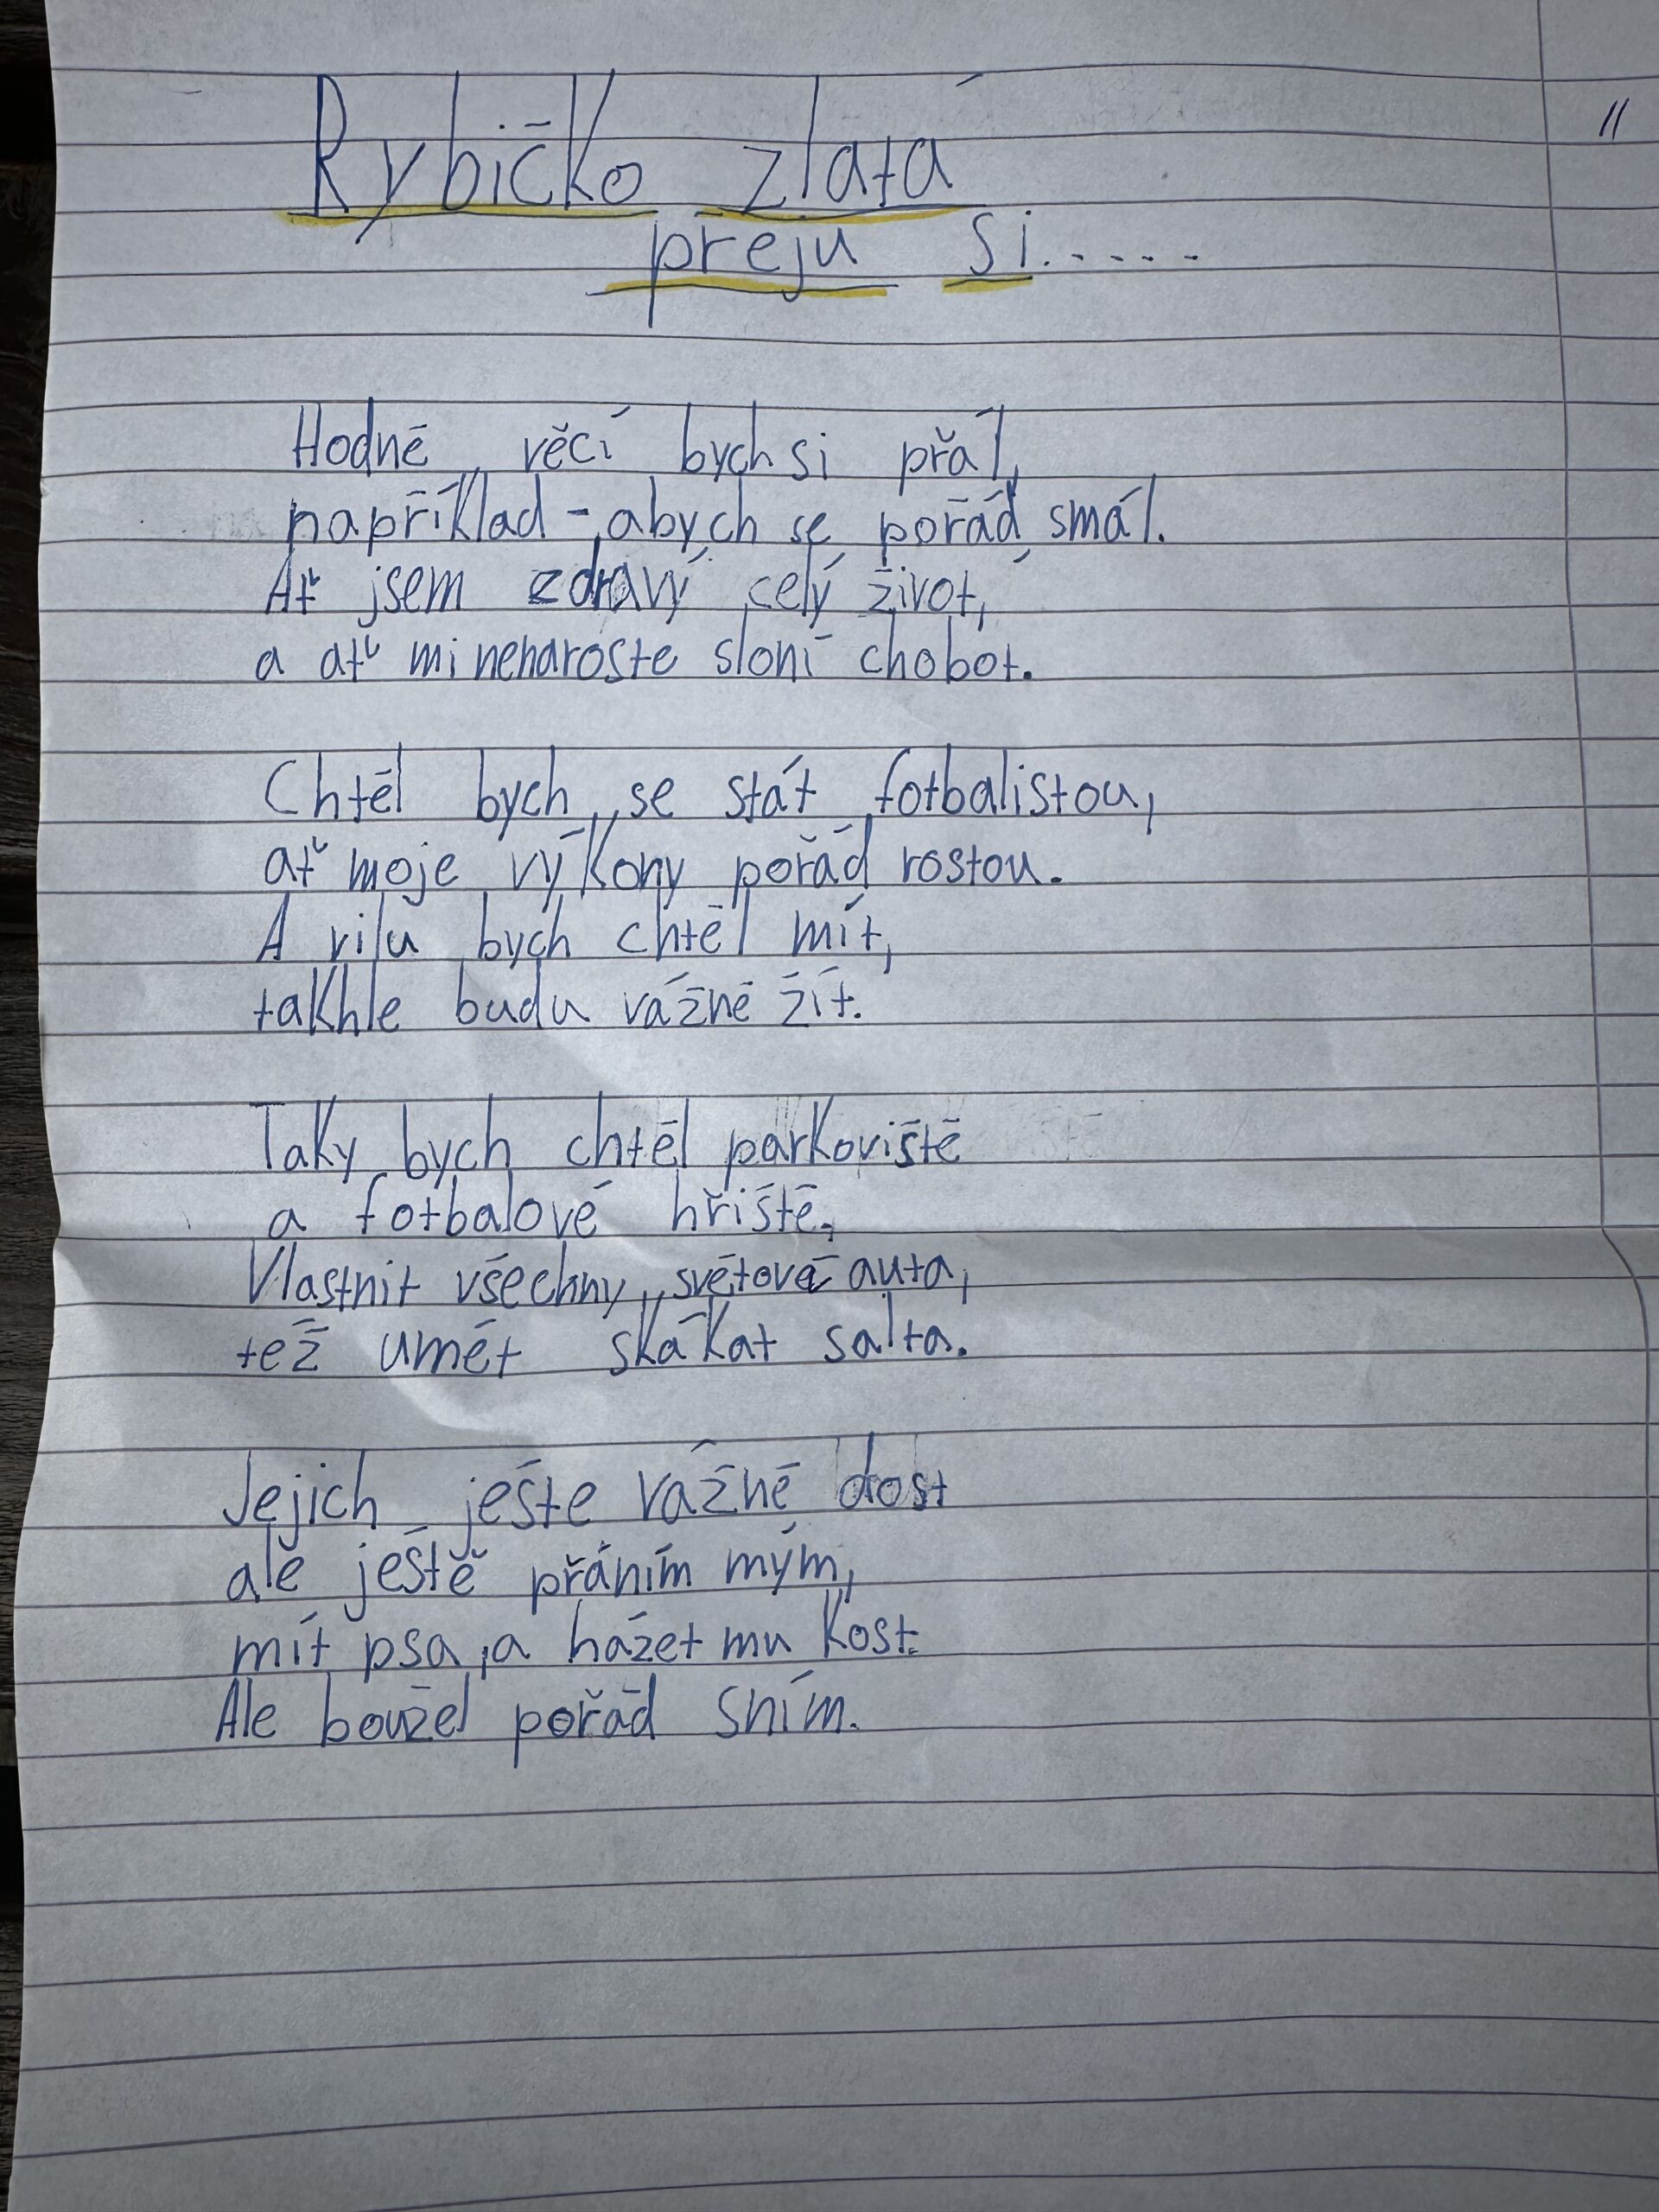 Rybičko zlatá
preju si.....
11
Hodně věcí bych si přál,
například - abych se pořád smál.
Ať jsem zdravý celý život,
a ať mi nenaroste sloní chobot.
Chtěl bych se stát fotbalistou,
ať moje výkony pořád rostou.
A vilu bych chtěl mít,
takhle budu vážně žít.
Taky bych chtěl parkoviště
a fotbalové hřiště,
Vlastnit všechny světová auta,
též umět skákat salta.
Jejich ještě vážně dost
ale ještě přáním mým,
mít psa, a házet mu kost.
Ale boužel pořád sním.